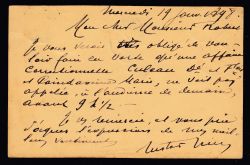 mercredi 19 janv. 1898
Mon cher Monsieur
Je vous serais très obligé de vou-
loir faire en sorte qu'une affaire
Correctionnelle
et Vandamme Marie, ne soit pas
appelée, à l'audience de demain,
avant 9 h ½ —
Je vous remercie, et vous prie
d'agréer l'expression de mes meil-
leurs sentiments